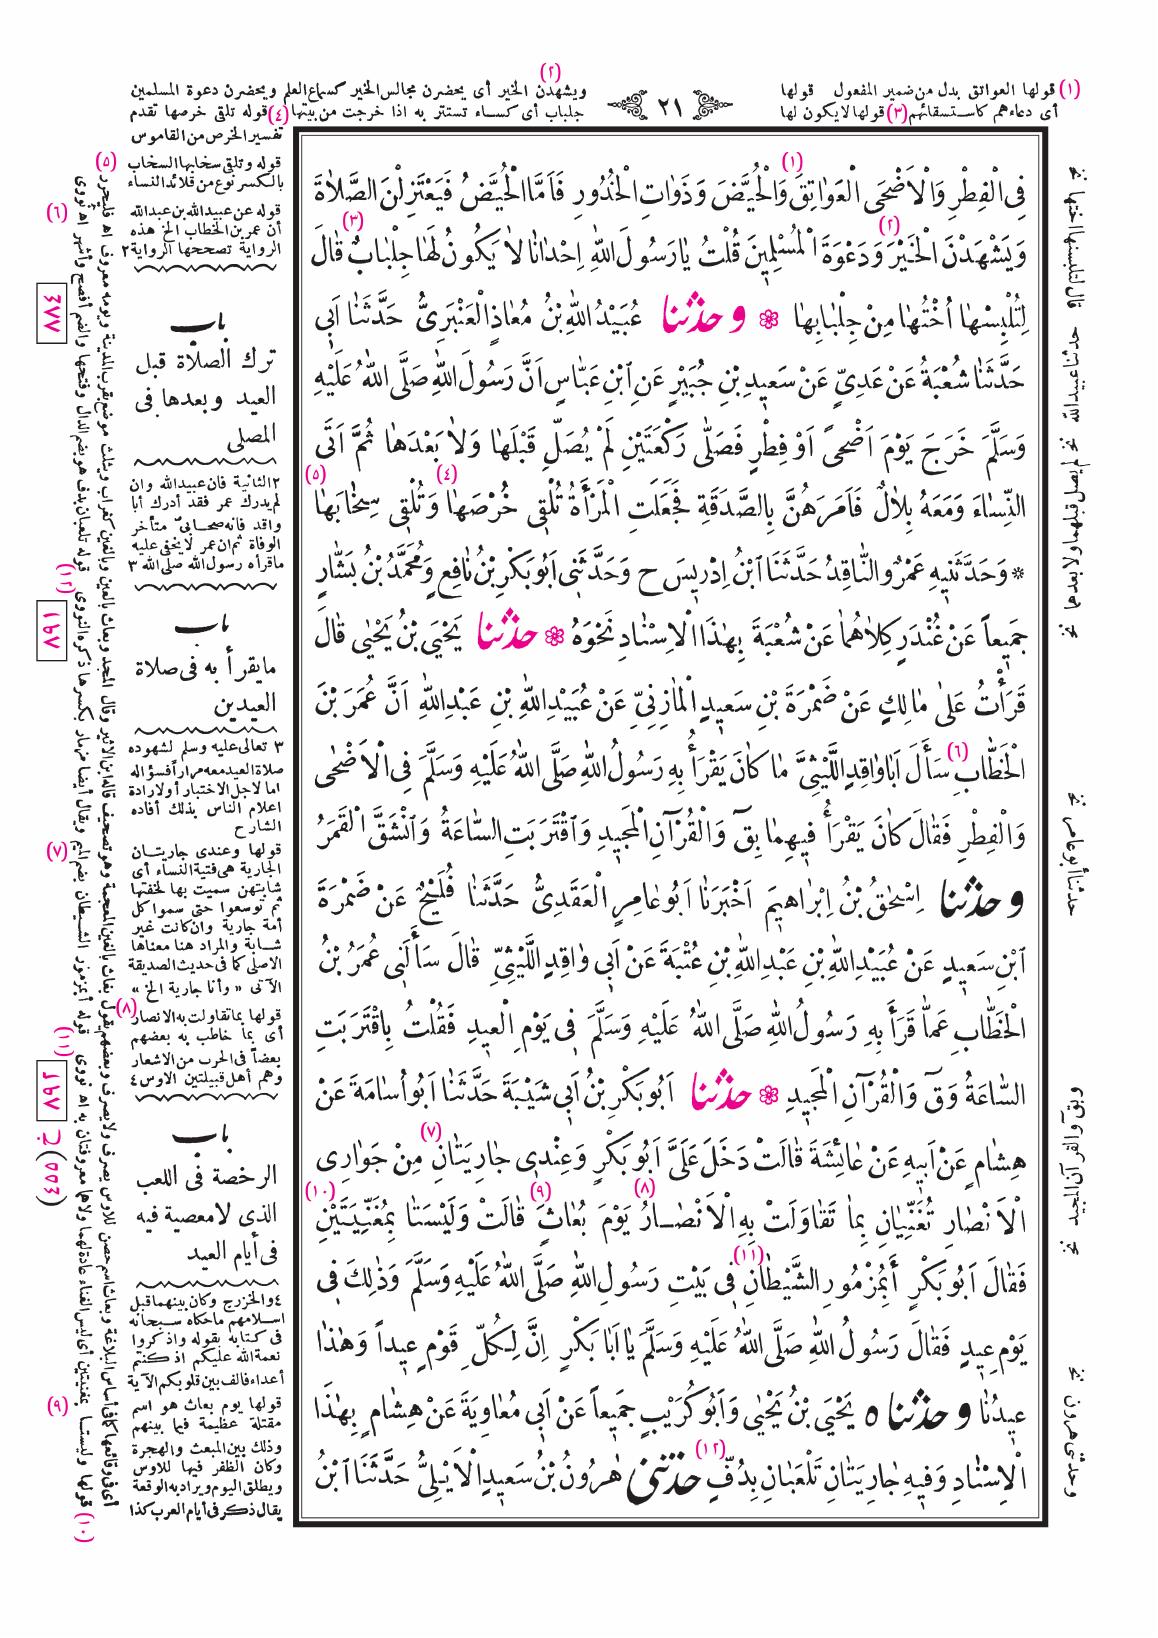 (١) قولها العواتق بدل من ضمير المفعول قولها (٢) ويشهدن الخير أى يحضرن مجالس الخير كسماع العلم ويحضرن دعوة المسلمين
أى دعاءهم كاستسقائهم (٣) قولها لا يكون لها جلباب أى كساء تستتر به اذا خرجت من بيتها (٤) قوله تلقى خرصها تقدم
تفسير الخرص من القاموس
٢١
فِى الْفِطْرِ وَالْاَضْحَى الْعَوَاتِقَ (١) وَالْحُيَّضَ وَذَوَاتِ الْخُدُورِ فَاَمَّا الْحُيَّضُ فَيَعْتَزِلْنَ الصَّلاَةَ
وَيَشْهَدْنَ الْخَيْرَ (٢) وَدَعْوَةَ الْمُسْلِمِينَ قُلْتُ يَا رَسُولَ اللهِ اِحْدَانَا لاَ يَكُونُ لَهَا جِلْبَابٌ (٣) قَالَ
لِتُلْبِسْهَا اُخْتُهَا مِنْ جِلْبَابِهَا ۞ وحدثنا عُبَيْدُ اللهِ بْنُ مُعَاذٍ الْعَنْبَرِىُّ حَدَّثَنَا اَبِى
حَدَّثَنَا شُعْبَةُ عَنْ عَدِىٍّ عَنْ سَعِيدِ بْنِ جُبَيْرٍ عَنِ ابْنِ عَبَّاسٍ اَنَّ رَسُولَ اللهِ صَلَّى اللهُ عَلَيْهِ
وَسَلَّمَ خَرَجَ يَوْمَ اَضْحىً اَوْ فِطْرٍ فَصَلَّى رَكْعَتَيْنِ لَمْ يُصَلِّ قَبْلَهَا وَلاَ بَعْدَهَا ثُمَّ اَتَى
النِّسَاءَ وَمَعَهُ بِلاَلٌ فَاَمَرَهُنَّ بِالصَّدَقَةِ فَجَعَلَتِ الْمَرْأَةُ تُلْقِى خُرْصَهَا (٤) وَتُلْقِى سِخَابَهَا (٥)
* وَحَدَّثَنِيهِ عَمْرٌو النَّاقِدُ حَدَّثَنَا ابْنُ اِدْرِيسَ ح وَحَدَّثَنِى اَبُو بَكْرِ بْنُ نَافِعٍ وَمُحَمَّدُ بْنُ بَشَّارٍ
جَمِيعاً عَنْ غُنْدَرٍ كِلاَهُمَا عَنْ شُعْبَةَ بِهٰذَا الْاِسْنَادِ نَحْوَهُ ۞ حدثنا يَحْيَى بْنُ يَحْيٰى قَالَ
قَرَأْتُ عَلَى مَالِكٍ عَنْ ضَمْرَةَ بْنِ سَعِيدٍ الْمَازِنِىِّ عَنْ عُبَيْدِ اللهِ بْنِ عَبْدِ اللهِ اَنَّ عُمَرَ بْنَ
الْخَطَّابِ (٦) سَأَلَ اَبَا وَاقِدٍ اللَّيْثِىَّ مَا كَانَ يَقْرَأُ بِهِ رَسُولُ اللهِ صَلَّى اللهُ عَلَيْهِ وَسَلَّمَ فِى الْاَضْحَى
وَالْفِطْرِ فَقَالَ كَانَ يَقْرَأُ فِيهِمَا بِقَ وَالْقُرْآنِ الْمَجِيدِ وَاقْتَرَبَتِ السَّاعَةُ وَانْشَقَّ الْقَمَرُ
وحدثنا اِسْحٰقُ بْنُ اِبْرَاهِيمَ اَخْبَرَنَا اَبُو عَامِرٍ الْعَقَدِىُّ حَدَّثَنَا فُلَيْحٌ عَنْ ضَمْرَةَ
ابْنِ سَعِيدٍ عَنْ عُبَيْدِ اللهِ بْنِ عَبْدِ اللهِ بْنِ عُتْبَةَ عَنْ اَبِى وَاقِدٍ اللَّيْثِىِّ قَالَ سَأَلَنِى عُمَرُ بْنُ
الْخَطَّابِ عَمَّا قَرَأَ بِهِ رَسُولُ اللهِ صَلَّى اللهُ عَلَيْهِ وَسَلَّمَ فِى يَوْمِ الْعِيدِ فَقُلْتُ بِاقْتَرَبَتِ
السَّاعَةُ وَقَ وَالْقُرْآنِ الْمَجِيدِ ۞ حدثنا اَبُو بَكْرِ بْنُ اَبِى شَيْبَةَ حَدَّثَنَا اَبُو اُسَامَةَ عَنْ
هِشَامٍ عَنْ اَبِيهِ عَنْ عَائِشَةَ قَالَتْ دَخَلَ عَلَىَّ اَبُو بَكْرٍ وَعِنْدِى جَارِيَتَانِ (٧) مِنْ جَوَارِى
الْاَنْصَارِ تُغَنِّيَانِ بِمَا تَقَاوَلَتْ بِهِ الْاَنْصَارُ (٨) يَوْمَ بُعَاثَ (٩) قَالَتْ وَلَيْسَتَا بِمُغَنِّيَتَيْنِ (١٠)
فَقَالَ اَبُو بَكْرٍ أَبِمُزْمُورِ الشَّيْطَانِ (١١) فِى بَيْتِ رَسُولِ اللهِ صَلَّى اللهُ عَلَيْهِ وَسَلَّمَ وَذٰلِكَ فِى
يَوْمِ عِيدٍ فَقَالَ رَسُولُ اللهِ صَلَّى اللهُ عَلَيْهِ وَسَلَّمَ يَا اَبَا بَكْرٍ اِنَّ لِكُلِّ قَوْمٍ عِيداً وَهٰذَا
عِيدُنَا وحدثناه يَحْيَى بْنُ يَحْيٰى وَاَبُو كُرَيْبٍ جَمِيعاً عَنْ اَبِى مُعَاوِيَةَ عَنْ هِشَامٍ بِهٰذَا
الْاِسْنَادِ وَفِيهِ جَارِيَتَانِ تَلْعَبَانِ بِدُفٍّ (١٢) حدثنى هٰرُونُ بْنُ سَعِيدٍ الْاَيْلِىُّ حَدَّثَنَا ابْنُ
(٥) قوله وتلقى سخابها السخاب
بالكسر نوع من قلائد النساء
(٦) قوله عن عبيد الله بن عبد الله
أن عمر بن الخطاب الخ هذه
الرواية تصححها الرواية ٢
باب
ترك الصلاة قبل
العيد وبعدها فى
المصلى
٢ الثانية فان عبيد الله وان
لم يدرك عمر فقد أدرك أبا
واقد فانه صحابىّ متأخر
الوفاة ثم ان عمر لا يخفى عليه
ما قرأه رسول الله صلى الله ٣
باب
ما يقرأ به فى صلاة
العيدين
٣ تعالى عليه وسلم لشهوده
صلاة العيد معه مراراً فسؤاله
اما لاجل الاختبار أو لارادة
اعلام الناس بذلك أفاده
الشارح
(٧) قولها وعندى جاريتان
الجارية هى فتية النساء أى
شابتهن سميت بها لخفتها
ثم توسعوا حتى سموا كل
أمة جارية وان كانت غير
شابة والمراد هنا معناها
الاصلى كما فى حديث الصديقة
الآتى « وأنا جارية الخ »
(٨) قولها بما تقاولت به الانصار
أى بما خاطب به بعضهم
بعضاً فى الحرب من الاشعار
وهم أهل قبيلتين الاوس ٤
باب
الرخصة فى اللعب
الذى لا معصية فيه
فى أيام العيد
٤ والخزرج وكان بينهما قبل
اسلامهم ما حكاه سبحانه
فى كتابه بقوله واذكروا
نعمة الله عليكم اذ كنتم
أعداء فالف بين قلوبكم الآية
(٩) قولها يوم بعاث هو اسم
مقتلة عظيمة فيما بينهم
وذلك بين المبعث والهجرة
وكان الظفر فيها للاوس
ويطلق اليوم ويراد به الوقعة
يقال ذكر فى أيام العرب كذا
٤٧٧
١٦٧
١٦٧
ج (٥٥٤)
قال لتلبسها اختها نخ
حدثنا عبيد الله نخ
لم يصل قبلهما ولا بعدهما نخ
حدثنا أبو عامر نخ
وبق والقرآن المجيد نخ
وحدثنى هرون نخ